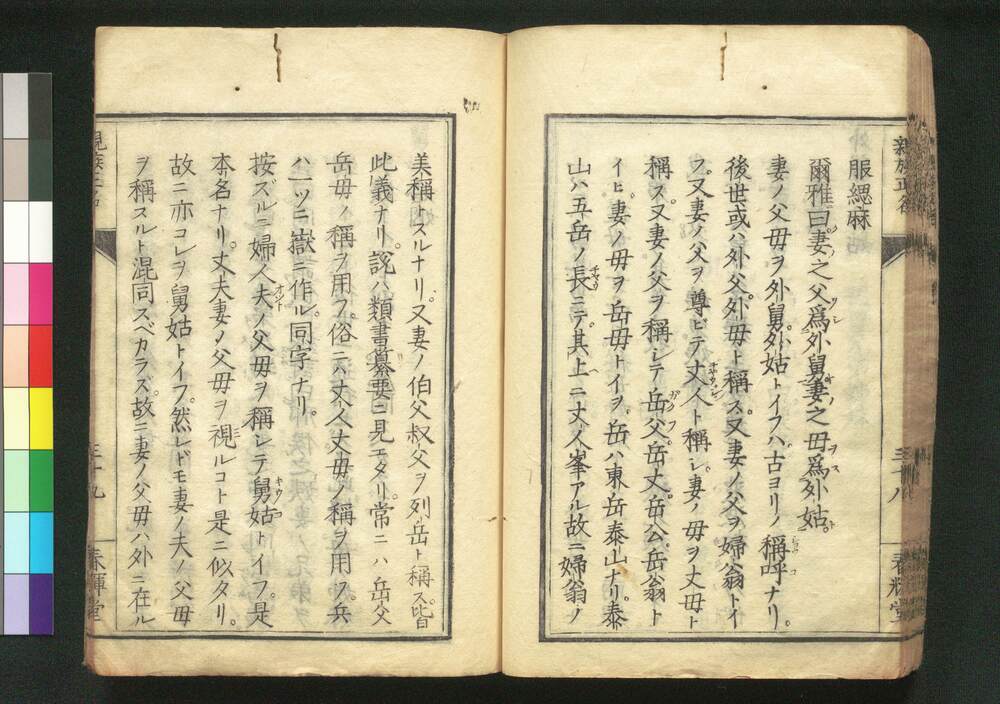 親族正名
三十八
春輝堂
服緦麻
爾雅曰妻之父爲外舅妻之母爲外姑。
妻ノ父母ヲ外舅。外姑トイフハ。古ヨリノ稱呼ナリ。
後世或ハ外父。外母ト稱ス。又妻ノ父ヲ婦翁トイ
フ。又妻ノ父ヲ尊ビテ丈人ト稱シ。妻ノ母ヲ丈母ト
稱ス。又妻ノ父ヲ稱シテ岳父。岳丈。岳公。岳翁ト
イヒ。妻ノ母ヲ岳母トイフ。岳ハ東岳泰山ナリ。泰
山ハ五岳ノ長ニテ。其上ニ丈人峯アル故ニ婦翁ノ
美稱トスルナリ。又妻ノ伯父叔父ヲ列岳ト稱ス。皆
此義ナリ。説ハ類書纂要ニ見エタリ。常ニハ岳父
岳母ノ稱ヲ用フ。俗ニハ丈人丈母ノ稱ヲ用フ。岳
ハ一ツニ嶽ニ作ル。同字ナリ。
按ズルニ婦人夫ノ父母ヲ稱シテ舅姑トイフ。是
本名ナリ。丈夫妻ノ父母ヲ視ルコト是ニ似タリ。
故ニ亦コレヲ舅姑トイフ。然レドモ妻ノ夫ノ父母
ヲ稱スルト混同スベカラズ。故ニ妻ノ父母ハ外ニ在ル
三十九
春輝堂